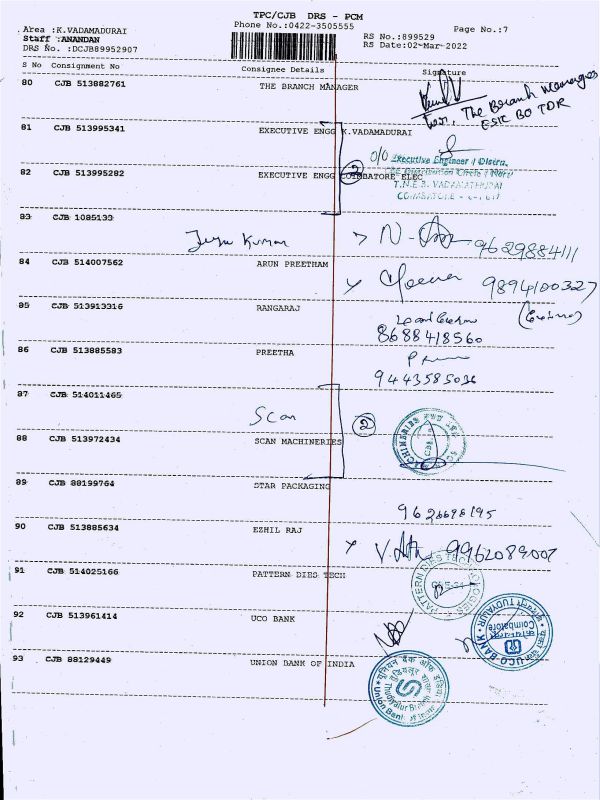 TPC/CJB DRS - PCM
Area :K.VADAMADURAI
Phone No.:0422-3505555
Page No.:7
Staff :ANANDAN
RS No.:899529
DRS No. :DCJB89952907
RS Date:02-Mar-2022
S No Consignment No Consignee Details Signature
80 CJB 513882761 THE BRANCH MANAGER
For, The Branch Manager
ESIC BO TDR
81 CJB 513995341 EXECUTIVE ENGG K.VADAMADURAI
O/O Executive Engineer / Distrn.
82 CJB 513995282 EXECUTIVE ENGG COIMBATORE ELEC
2
T.N.E.B. VADAMATHURAI
COIMBATORE
83 CJB 1085133
Jeya Kumar
9629884111
84 CJB 514007562 ARUN PREETHAM
9894100327
85 CJB 513913316 RANGARAJ
8688418560
86 CJB 513885583 PREETHA
9443585036
87 CJB 514011465
Scan
2
88 CJB 513972434 SCAN MACHINERIES
89 CJB 88199764 STAR PACKAGING
9626698195
90 CJB 513885634 EZHIL RAJ
9962089007
91 CJB 514025166 PATTERN DIES TECH
PATTERN DIES TECH
92 CJB 513961414 UCO BANK
UCO BANK
TUDIYALUR
Coimbatore
93 CJB 88129449 UNION BANK OF INDIA
यूनियन बैंक ऑफ इंडिया
Thudiyalur Branch
Union Bank of India